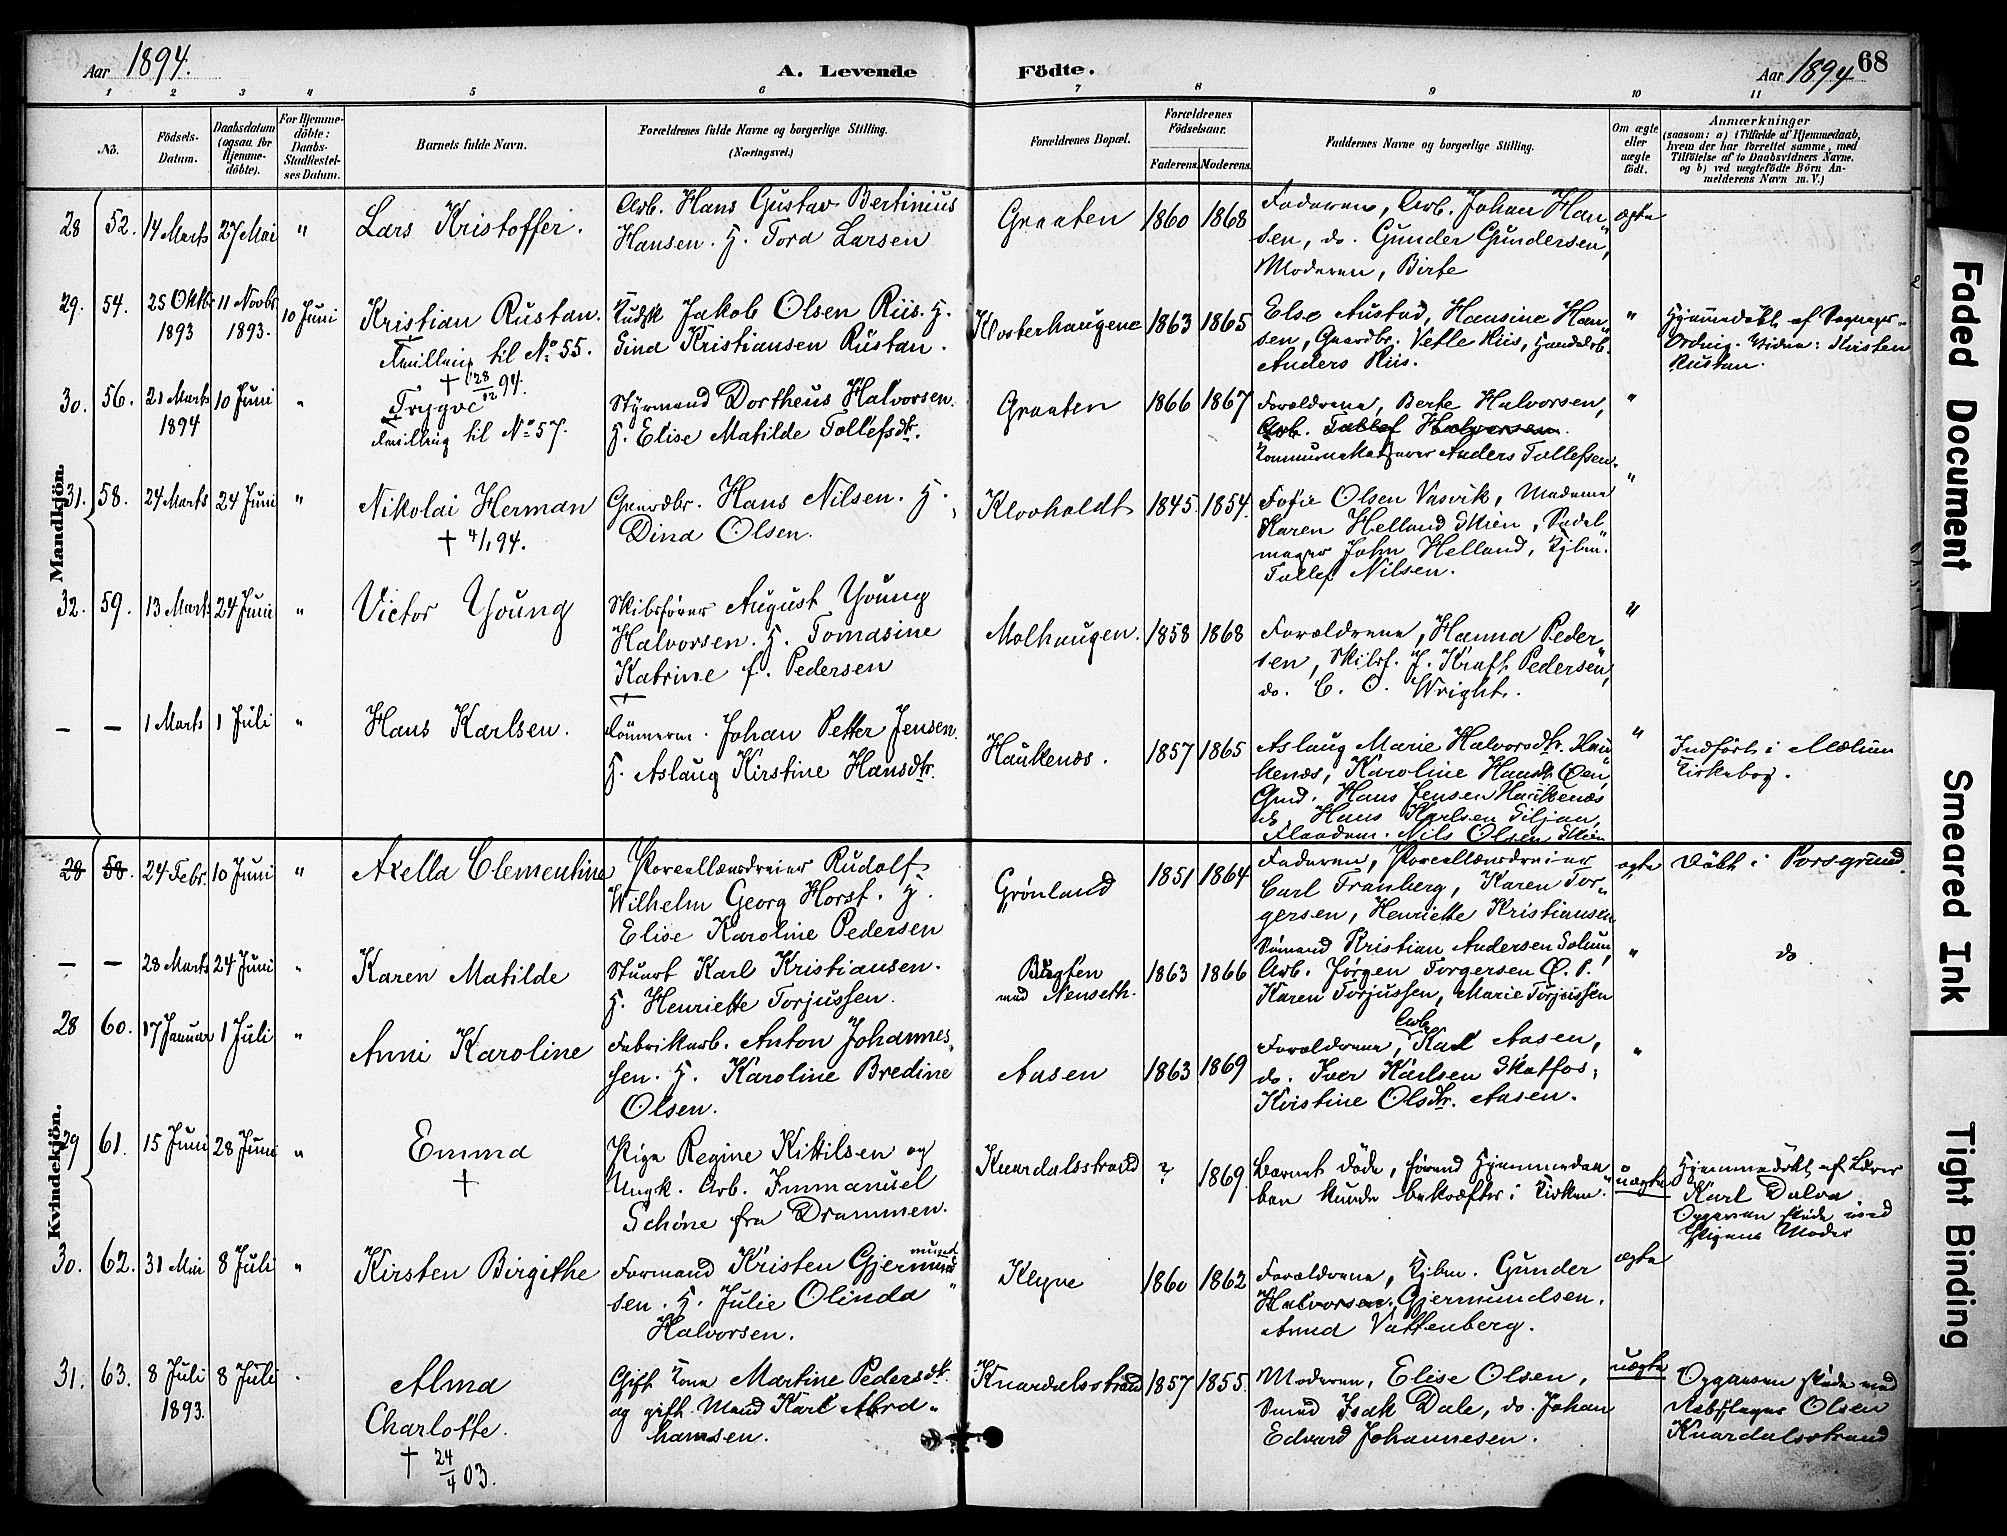 Aar 1894.
A. Levende Födte.
Aar 1894
68
1 2 3 4 5 6 7 8 9 10 11
Nö.
Födsels-
Datum.
Daabsdatum
(ogsaa for
Hjemme-
döbte).
For Hjemme-
döbte:
Daabs-
Stadfæstel-
ses Datum.
Barnets fulde Navn.
Forældrenes fulde Navne og borgerlige Stilling.
(Næringsvei.)
Forældrenes Bopæl.
Forældrenes
Födselsaar.
Faderens. Moderens.
Faddernes Navne og borgerlige Stilling.
Om ægte
eller
uægte
födt.
Anmærkninger
(saasom: a) i Tilfælde af Hjemmedaab,
hvem der har forrettet samme, med
Tilföielse af to Daabsvidners Navne.
og b) ved uægtefödte Börn An-
melderens Navn m. V.)
Mandkjön.
28 52. 14 Marts 27 Mai " Lars Kristoffer.
Arb. Hans Gustav Bertinius
Hansen. H. Tora Larsen
Graaten 1860 1868
Faderen, Arb. Johan Han
sen, do. Gunder Gundersen,
Moderen, Birte
ægte
29. 54. 25 Oktbr 1893 11 Novbr 1893. 10 Juni
Kristian Rustan.
Tvilling til No 55.
† 28/12 94.
Kudsk Jakob Olsen Riis. H.
Gina Kristiansen Rustan.
Klosterhaugene 1863 1865
Else Austad, Hansine Han
sen, Gaardbr. Vetle Riis, Handelsb.
Anders Riis.
"
Hjemmedøbt af
Kirsten
Rustan.
30. 56. 21 Marts 1894 10 Juni "
Trygve
Tvilling til No 57.
Styrmand Dortheus Halvorsen.
H. Elise Matilde Tollefsdtr.
Graaten 1866 1867
Forældrene, Berte Halvorsen,
Arb. Tollef Halvorsen.
Kommunekasserer Anders Tollefsen.
"
31. 58. 24 Marts 24 Juni "
Nikolai Herman
† 4/1 94.
Gaardbr. Hans Nilsen. H.
Dina Olsen.
Klovholdt 1845 1854.
Sofie Olsen Vasvik, Madame
Karen Helland Skien, Sadel
mager John Helland, Kjbm.
Tollef Nilsen.
"
32. 59. 13 Marts 24 Juni "
Victor Young
Skibsfører August Young
Halvorsen. H. Tomasine
Katrine f. Pedersen
Molhaugen. 1858 1868
Forældrene, Hanna Peder
sen, Skibsf. J. Kraft Pedersen,
do. C. O. Wright.
"
— — 1 Marts 1 Juli "
Hans Karlsen.
Tømmerm. Johan Petter Jensen.
H. Aslaug Kirstine Hansdtr.
Haukenæs. 1857 1865
Aslaug Marie Halvorsdtr. Hau
kenæs, Karoline Hansdtr. Øen,
Gmd. Hans Jensen Haukenæs
do Hans Karlsen Giljan,
Flaadem. Nils Olsen Skien
"
Indført i Mælum
Kirkebog.
Kvindekjön.
28 58. 24 Febr. 10 Juni "
Axella Clementine
Porcellænsdreier Rudolf
Wilhelm Georg Horst. H.
Elise Karoline Pedersen
Grønland 1851 1864
Faderen, Porcellænsdreier
Carl Franberg, Karen Tor-
gersen, Henriette Kristiansen
ægte
Døbt i Porsgrund.
— — 28 Marts 24 Juni "
Karen Matilde
Stuart Karl Kristiansen.
H. Henriette Torjussen.
Bugten
ved Nenseth. 1863 1866
Sømand Kristian Andersen Solum,
Arb. Jørgen Torgersen Ø. P.
Karen Torjussen, Marie Torjussen
"
do
28 60. 17 Januar 1 Juli "
Anni Karoline
Fabrikarb. Anton Johannes-
sen. H. Karoline Bredine
Olsen.
Aasen 1863 1869
Forældrene, Arb. Karl Aasen,
do. Iver Karlsen Skotfos,
Kristine Olsdtr. Aasen.
"
29 61. 15 Juni 28 Juni "
Emma
†
Pige Regine Kittilsen og
Ungk. Arb. Immanuel
Schöne fra Drammen.
Knardalsstrand ? 1869
Barnet døde, førend Hjemmedaa
ben kunde bekræftes i Kirken.
uægte
Hjemmedøbt af Lærer
Karl Dalva.
Opgaven skede ved
Pigens Moder
30. 62. 31 Mai 8 Juli "
Kirsten Birgithe
Formand Kristen Gjermund
sen. H. Julie Olinda
Halvorsen.
Klyve 1860 1862
Forældrene, Kjbm. Gunder
Halvorsen, Gjermundsen,
Anna Vattenberg.
ægte
31. 63. 8 Juli 1893. 8 Juli
Alma
Charlotte.
† 24/4 03.
Gift Kone Martine Pedersdtr.
og gift Mand Karl Abra-
hamsen.
Knardalsstrand 1857 1855.
Moderen, Elise Olsen,
Smed Isak Dale, do. Johan
Edvard Johannesen.
uægte
Opgaven skede ved
Rebslager Olsen
Knardalsstrand
Faded Document
Smeared Ink
Tight Binding